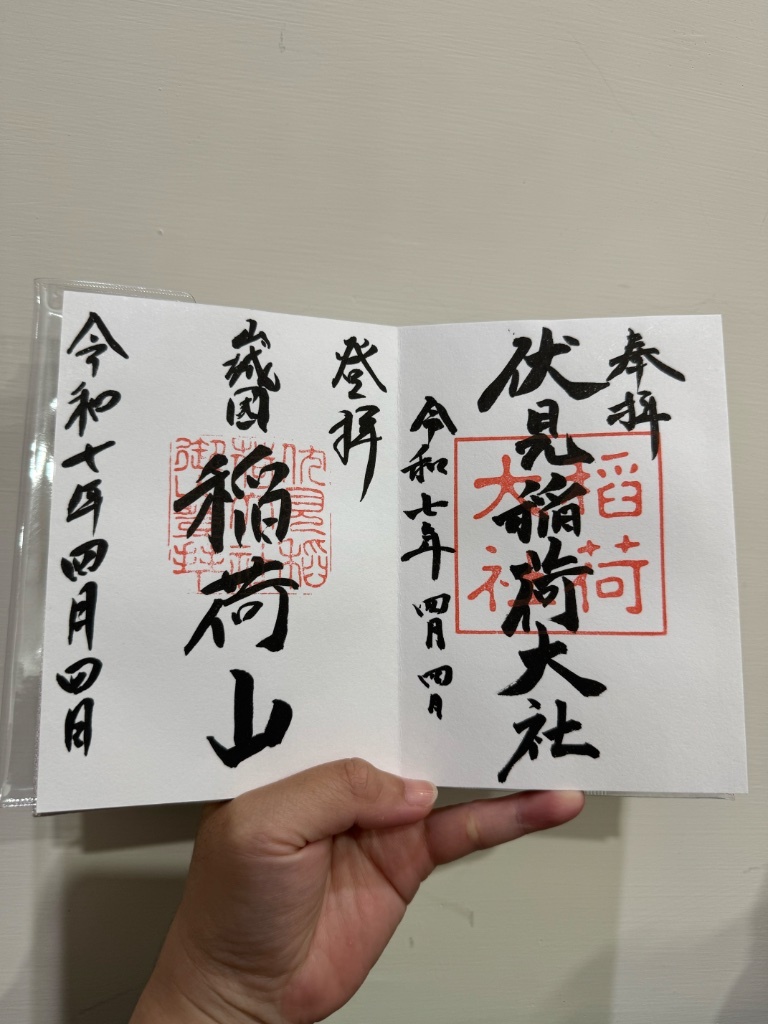 奉拝
伏見稲荷大社
稲荷
大社
令和七年 四月四日
登拝
山城国 稲荷山
令和七年四月四日